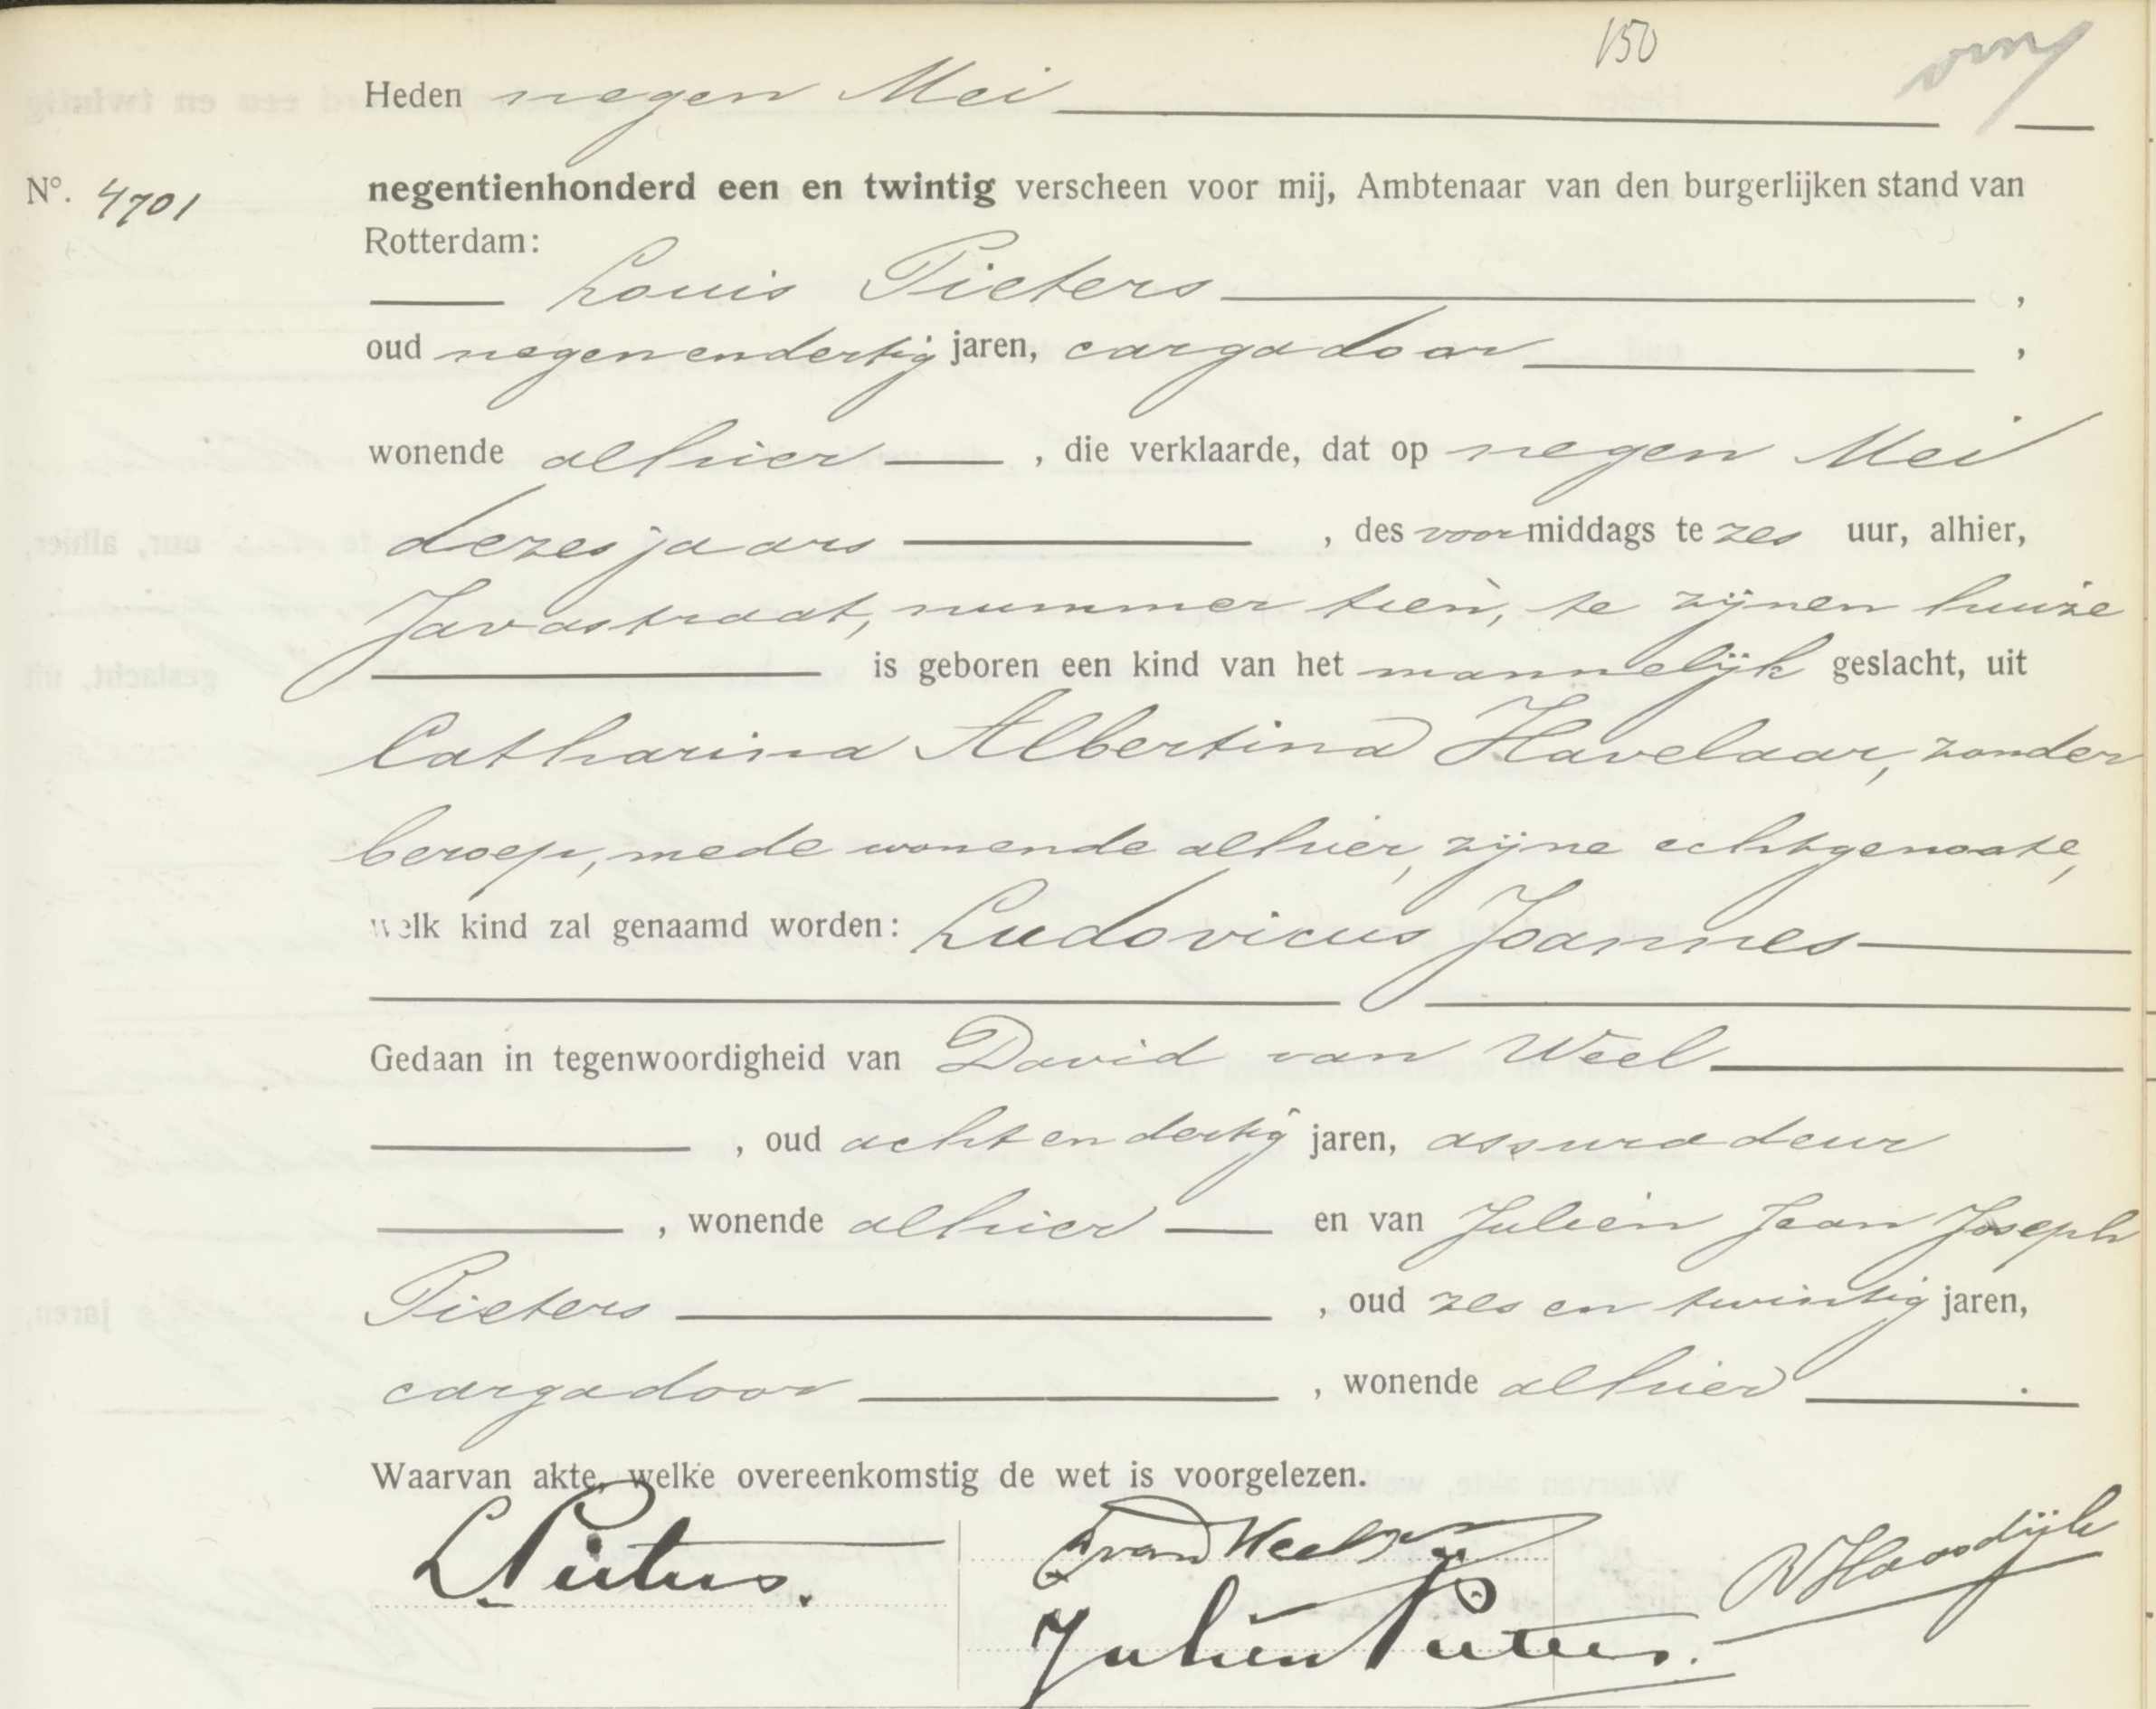 150
Heden negen Mei
Nº. 4701
negentienhonderd een en twintig verscheen voor mij, Ambtenaar van den burgerlijken stand van
Rotterdam:
Louis Pieters ,
oud negenendertig jaren, cargadoor ,
wonende alhier , die verklaarde, dat op negen Mei
dezes jaars , des voormiddags te zes uur, alhier,
Javastraat, nummer tien, te zijnen huize
is geboren een kind van het mannelijk geslacht, uit
Catharina Albertina Havelaar, zonder
beroep, mede wonende alhier, zijne echtgenoote,
welk kind zal genaamd worden: Ludovicus Joannes
Gedaan in tegenwoordigheid van David van Weel
, oud acht en dertig jaren, assuradeur
, wonende alhier en van Julien Jean Joseph
Pieters , oud zes en twintig jaren,
cargadoor , wonende alhier .
Waarvan akte, welke overeenkomstig de wet is voorgelezen.
L Pieters.
D van Weel
Julien Pieters.